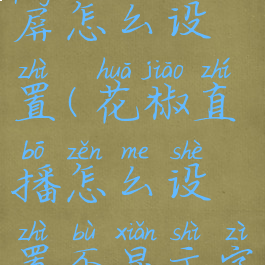 屏怎么设
zhì huā jiāo zhí
置(花椒直
bō zěn me shè
播怎么设
zhì bù xiǎn shì zì
置不显示字